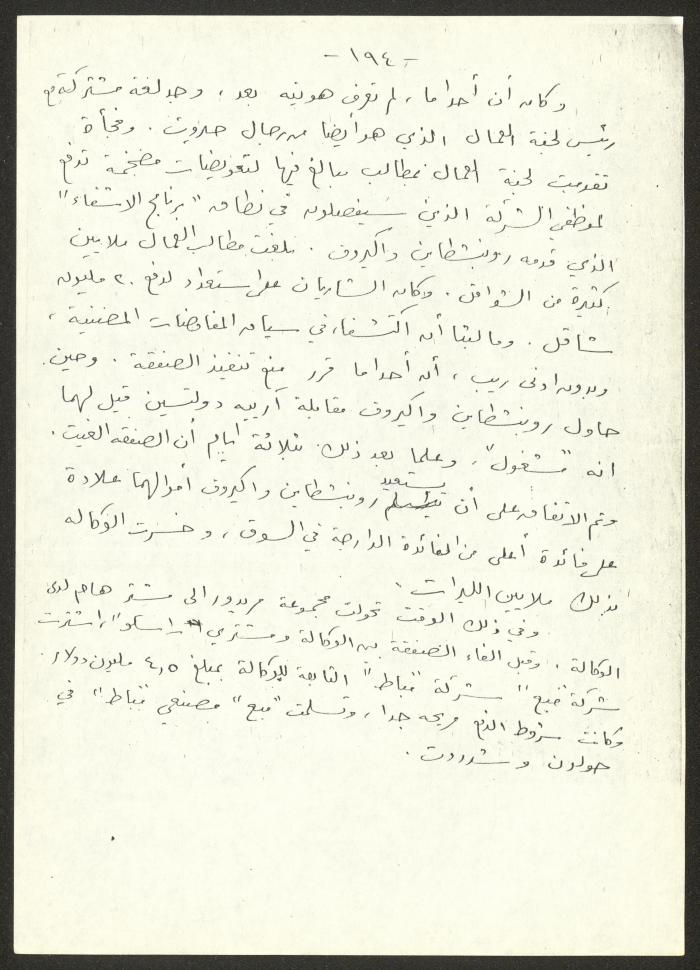 - ١٩٤ -
وكان أن أحدا ما، لم تعرف هويته بعد، وجد لغة مشتركة مع
رئيس لجنة العمال الذي هو أيضا من رجال حيروت. وفجأة
تقدمت لجنة العمال بمطالب مبالغ فيها لتعويضات مضخمة تدفع
لموظفي الشركة الذين سيفصلون في نطاق "برنامج الاشفاء"
الذي قدمه روبنشطاين واكيروف. بلغت مطالب العمال ملايين
كثيرة من الشواقل. وكان الشاريان على استعداد لدفع ٢٠ مليون
شاقل. وما لبثا أن اكتشفا، في سياق المفاوضات المضنية،
وبدون ادنى ريب، أن أحدا ما قرر منع تنفيذ الصفقة. وحين
حاول روبنشطاين واكيروف مقابلة آرييه دولتسين قيل لهما
انه "مشغول"، وعلما بعد ذلك بثلاثة أيام أن الصفقة الغيت.
وتم الاتفاق على أن يستعيد روبنشطاين واكيروف أموالهما علاوة
على فائدة أعلى من الفائدة الدارجة في السوق، وخسرت الوكالة
بذلك ملايين الليرات.
وفي ذلك الوقت تحولت مجموعة مريدور الى مشتر هام لدى
الوكالة. وقبل الغاء الصفقة بين الوكالة ومشتري "راسكو"، اشترت
شركة "منبع" شركة "مباط" التابعة للوكالة بمبلغ ٤,٥ مليون دولار.
وكانت شروط الدفع مريحة جدا، وتسلمت "منبع" مصنعي "مباط" في
حولون و سديروت.